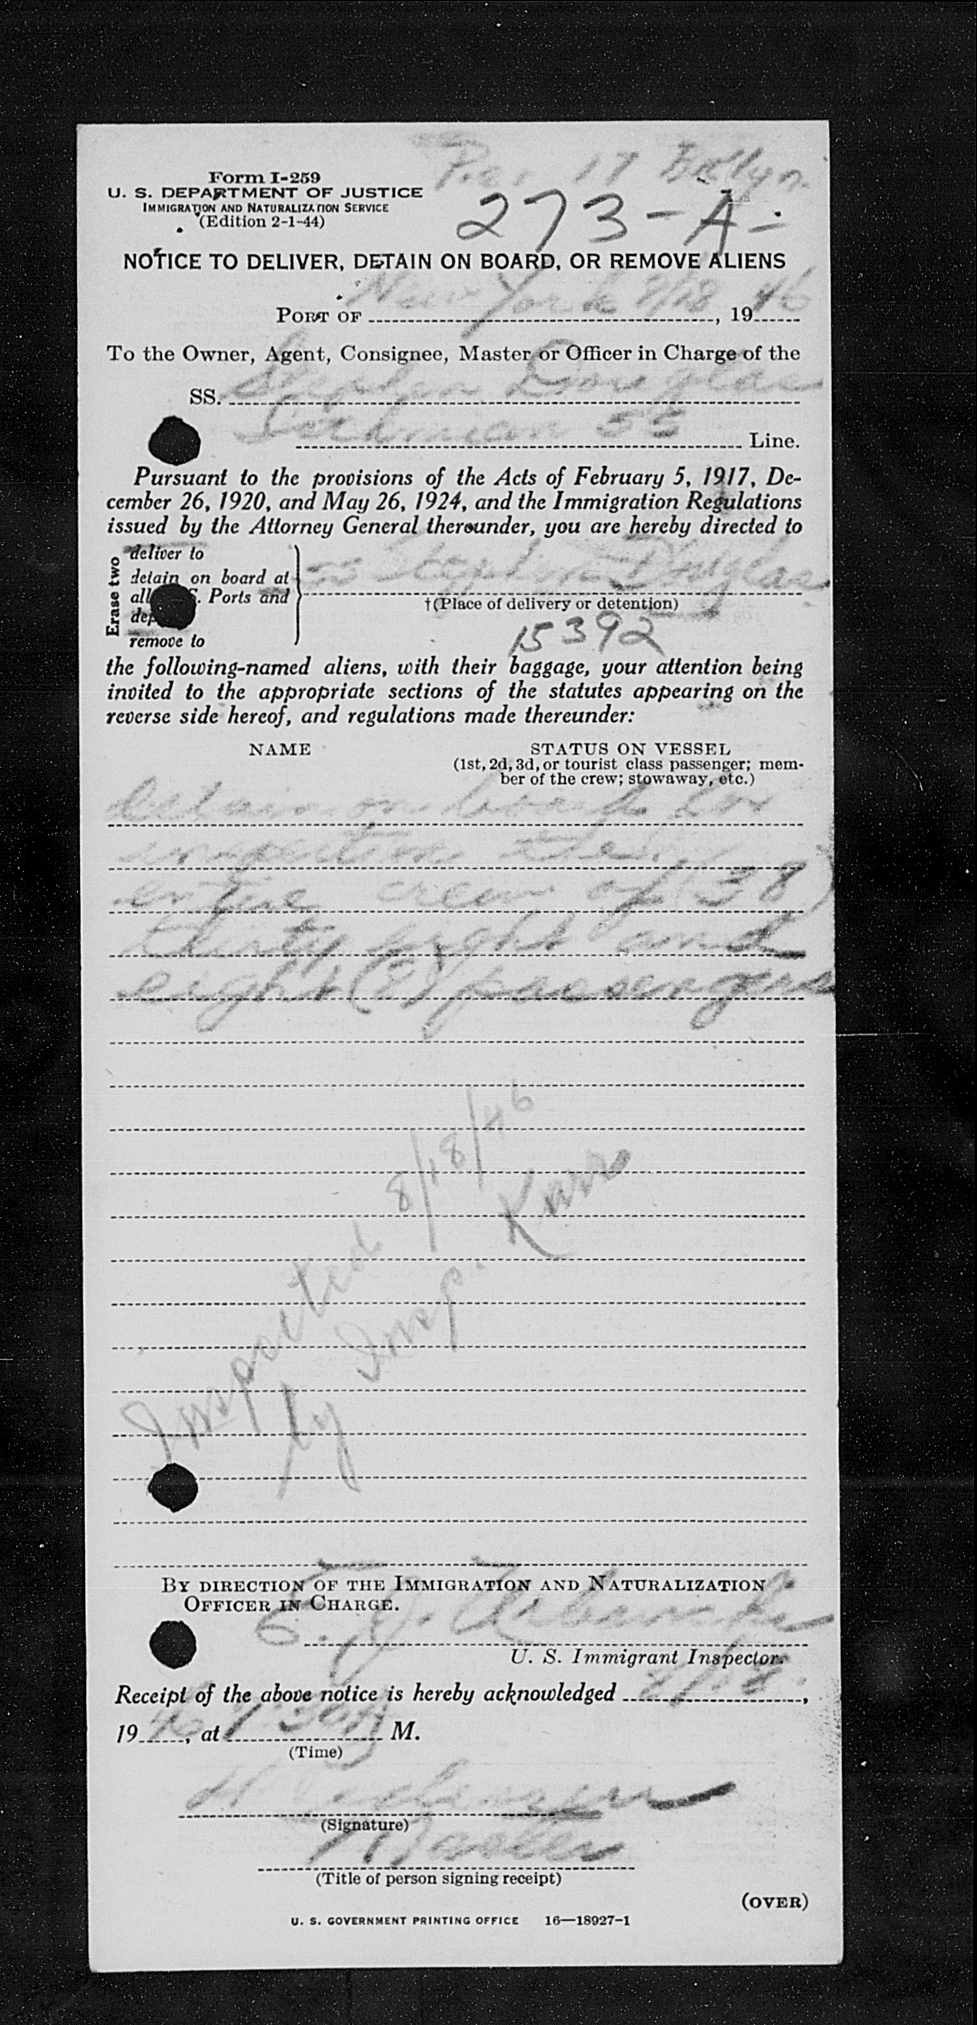 Pier 17 Bklyn.
Form I-259
U. S. DEPARTMENT OF JUSTICE
IMMIGRATION AND NATURALIZATION SERVICE
(Edition 2-1-44)
273-A-
NOTICE TO DELIVER, DETAIN ON BOARD, OR REMOVE ALIENS
PORT OF New York 8/18, 1946
To the Owner, Agent, Consignee, Master or Officer in Charge of the
SS. Stephen Douglas
Isthmian SS Line.
Pursuant to the provisions of the Acts of February 5, 1917, De-
cember 26, 1920, and May 26, 1924, and the Immigration Regulations
issued by the Attorney General thereunder, you are hereby directed to
Erase two
deliver to
detain on board at
all U. S. Ports and
remove to
SS Stephen Douglas
†(Place of delivery or detention)
15392
the following-named aliens, with their baggage, your attention being
invited to the appropriate sections of the statutes appearing on the
reverse side hereof, and regulations made thereunder:
NAME STATUS ON VESSEL
(1st, 2d, 3d, or tourist class passenger; mem-
ber of the crew; stowaway, etc.)
Detain on board for
inspection the
entire crew of (38)
thirty eight and
eight (8) passengers
Inspected 8/18/46
by Insp. Karr
BY DIRECTION OF THE IMMIGRATION AND NATURALIZATION
OFFICER IN CHARGE.
E. J.
U. S. Immigrant Inspector.
Receipt of the above notice is hereby acknowledged 8/18,
1946, at 7:30 A M.
(Time)
(Signature)
Master
(Title of person signing receipt)
(OVER)
U. S. GOVERNMENT PRINTING OFFICE 16—18927-1